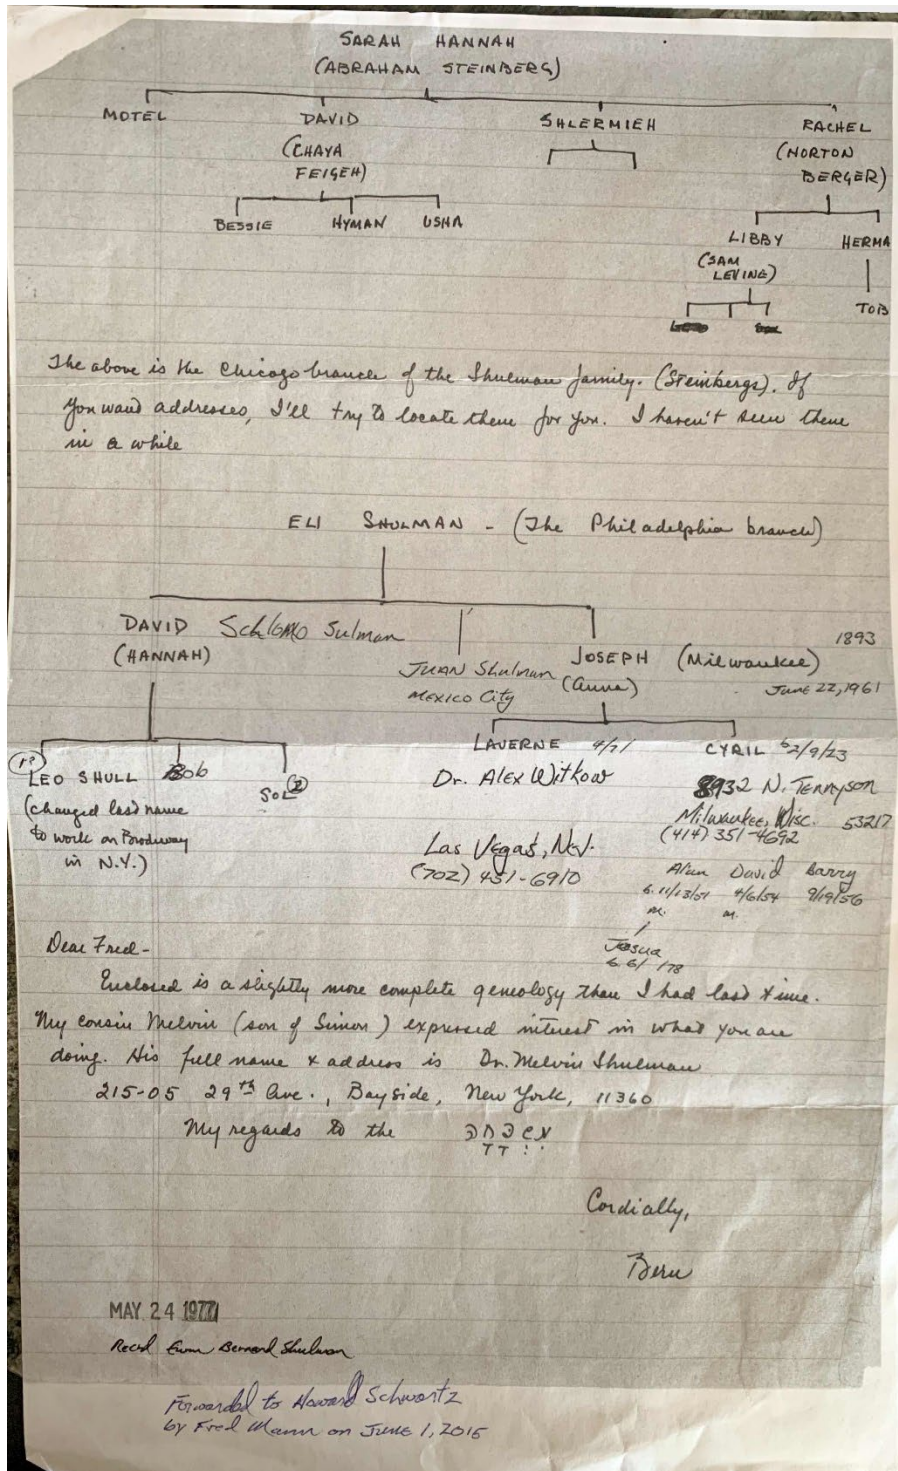 SARAH HANNAH
(ABRAHAM STEINBERG)
MOTEL DAVID SHLERMIEH RACHEL
(CHAYA FEIGEH) (NORTON BERGER)
BESSIE HYMAN USHA LIBBY HERMA
(SAM LEVINE)
TOB
The above is the Chicago branch of the Shulman family. (Steinbergs). If
you want addresses, I'll try to locate them for you. I haven't seen them
in a while
ELI SHULMAN - (The Philadelphia branch)
DAVID Schlomo Sulman
(HANNAH)
JUAN Shulman
MEXICO City
JOSEPH (Milwaukee) 1893
(Anna) June 22, 1961
LAVERNE 4/71 CYRIL b 2/9/23
LEO SHULL Bob SOL (2)
(changed last name
to work on Broadway
in N.Y.)
Dr. Alex Witkow
Las Vegas, Nev.
(702) 451-6910
8932 N. Tennyson
Milwaukee, Wisc. 53217
(414) 351-4692
Alan David Barry
b. 11/13/51 4/6/54 9/19/56
m. m.
Dear Fred-
Enclosed is a slightly more complete geneology than I had last time.
My cousin Melvin (son of Simon) expressed interest in what you are
doing. His full name & address is Dr. Melvin Shulman
215-05 29th Ave., Bayside, New York, 11360
My regards to the
Cordially,
Bern
MAY 24 1977
Rec'd from Bernard Shulman
Forwarded to Howard Schwartz
by Fred Mann on June 1, 2015